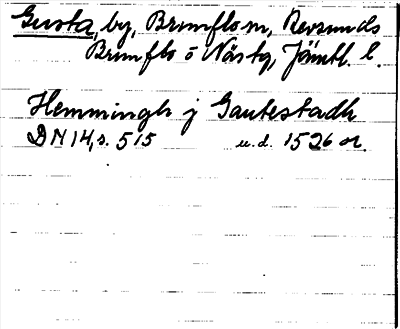 Gusta, by, Brunflo sn, Revsunds
Brunflo o Näsby, Jämtl. l.
Hemmingh j Gautestadh
DN 14, s. 515 u.d. 1526 or.